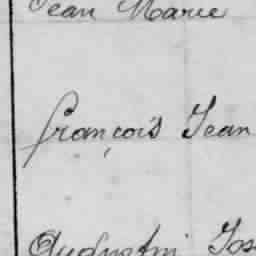 Jean Marie
françois Jean
Augustin Jos